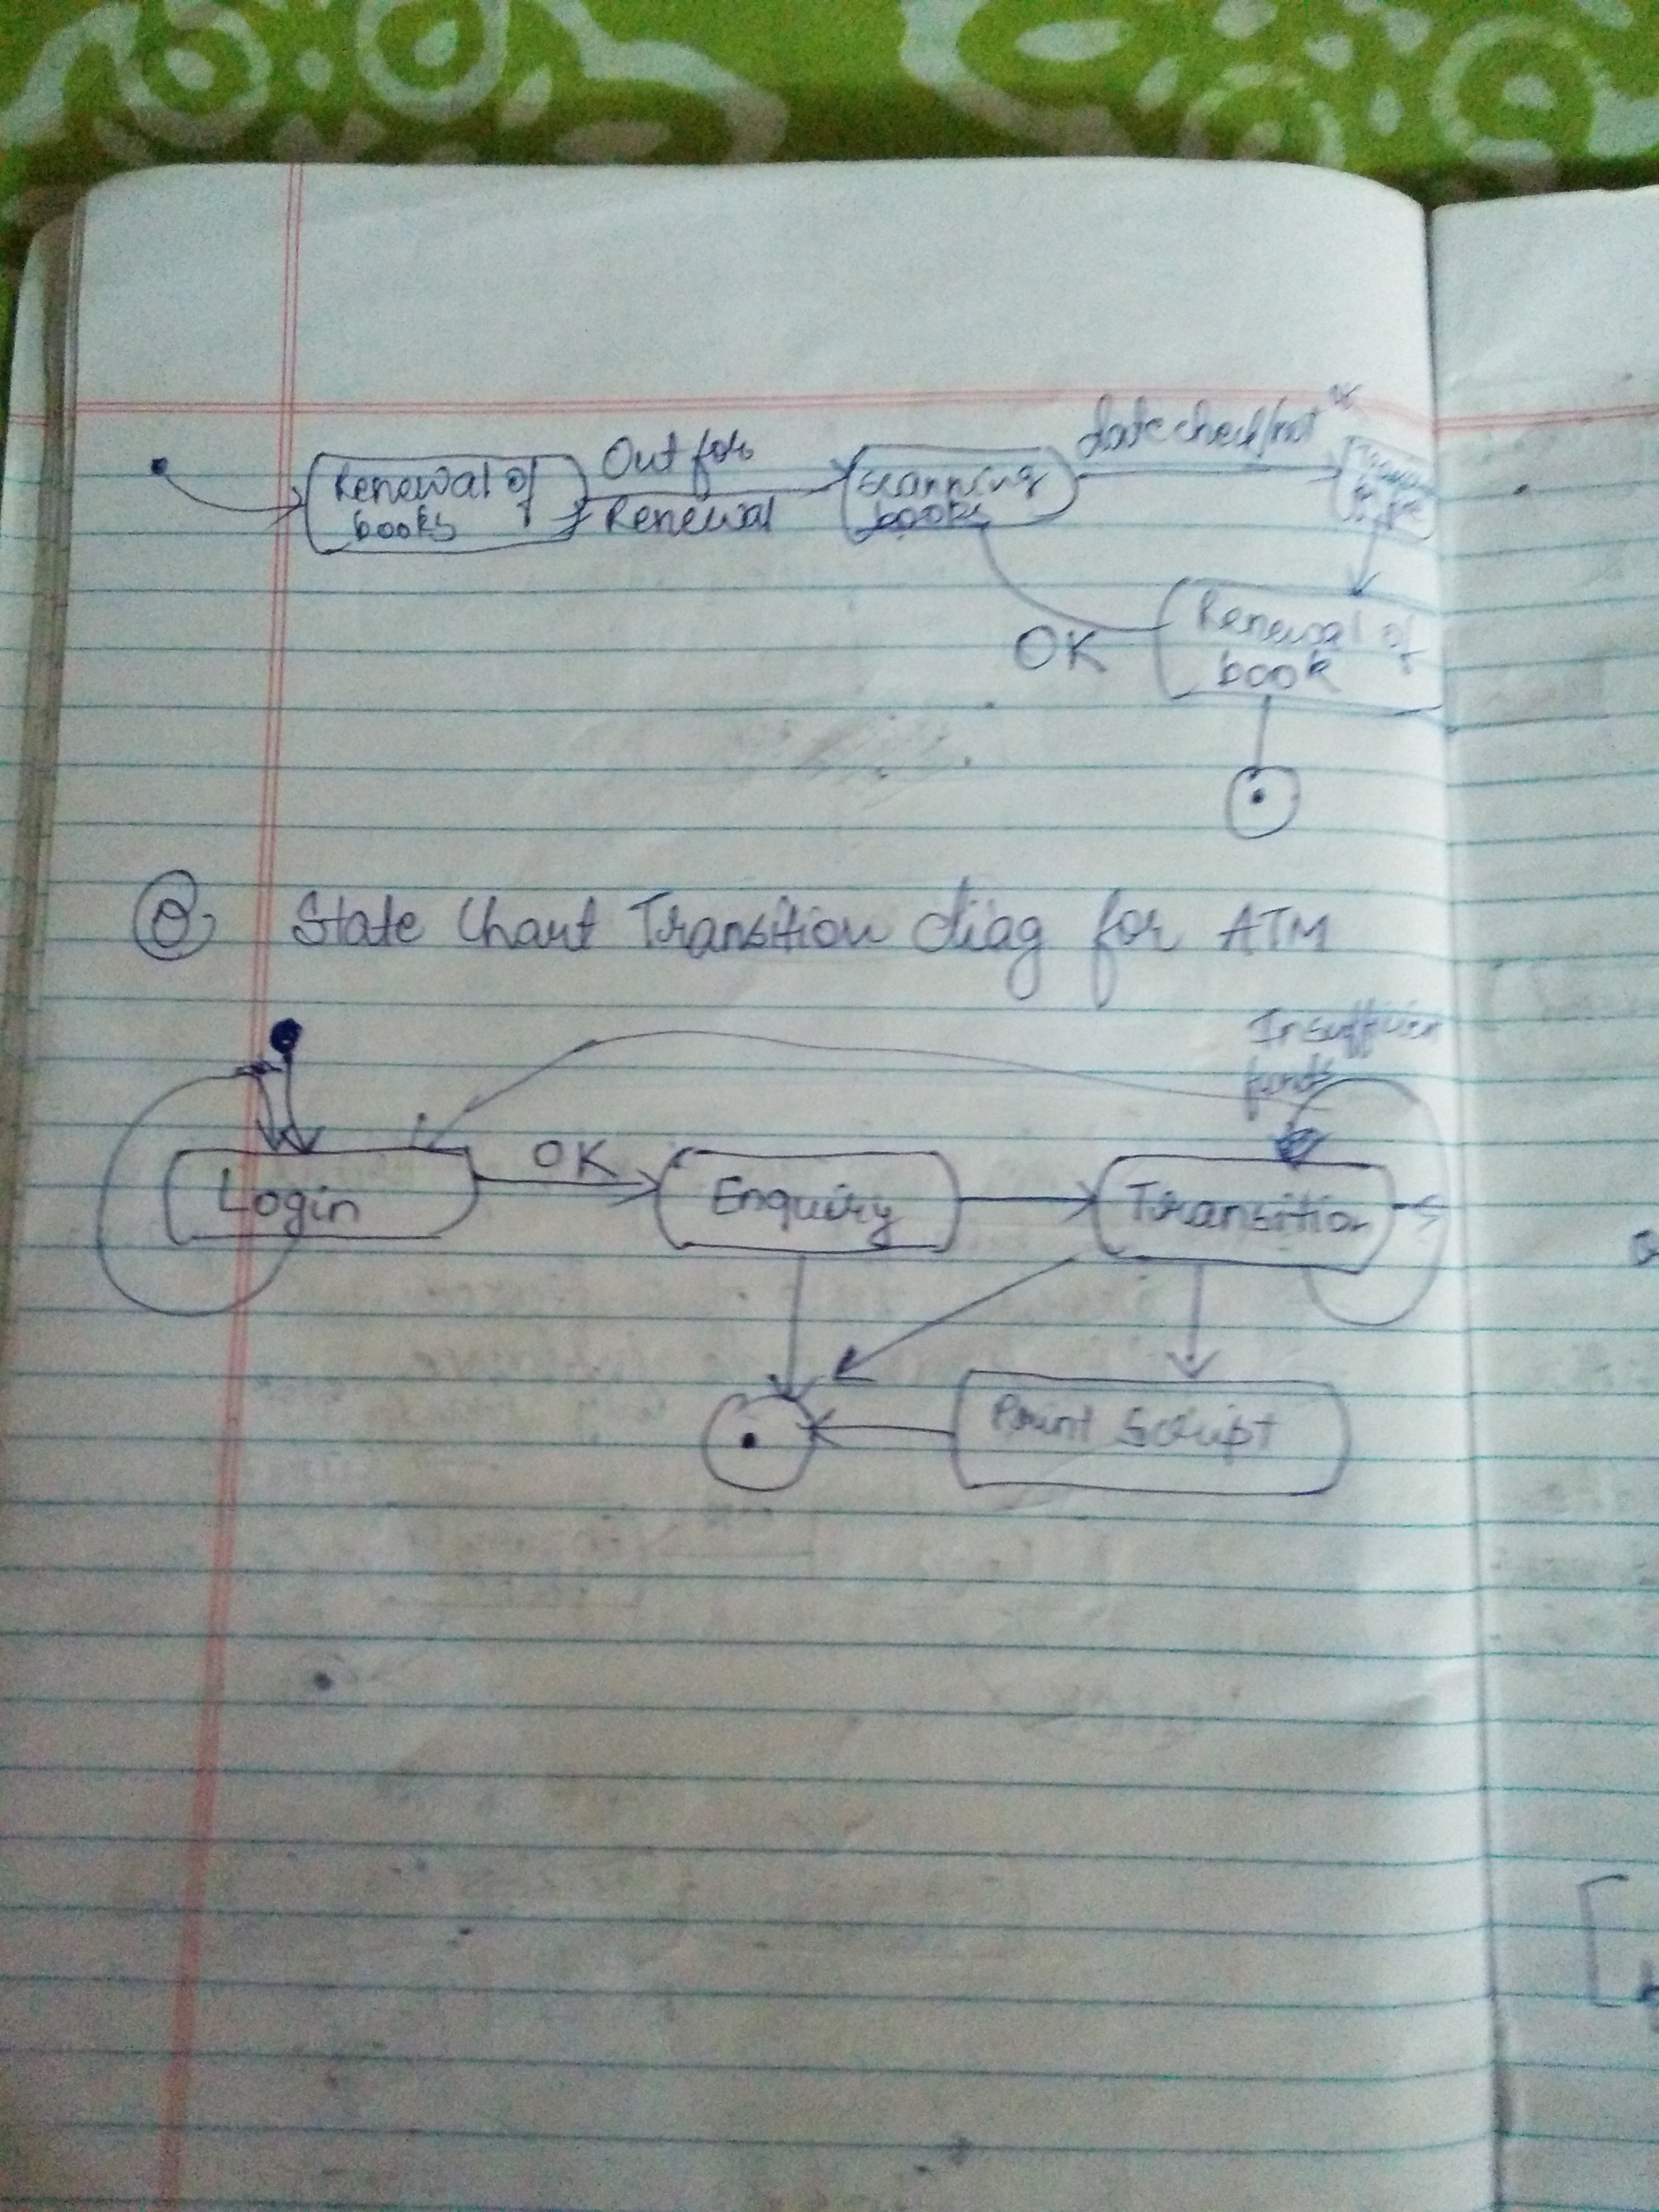 Renewal of
books
Out for
Renewal
Scanning
books
date check/not
OK
Renewal of
book
Q State Chart Transition diag for ATM
Insufficien
funds
Login
OK
Enquiry
Transition
Print Script